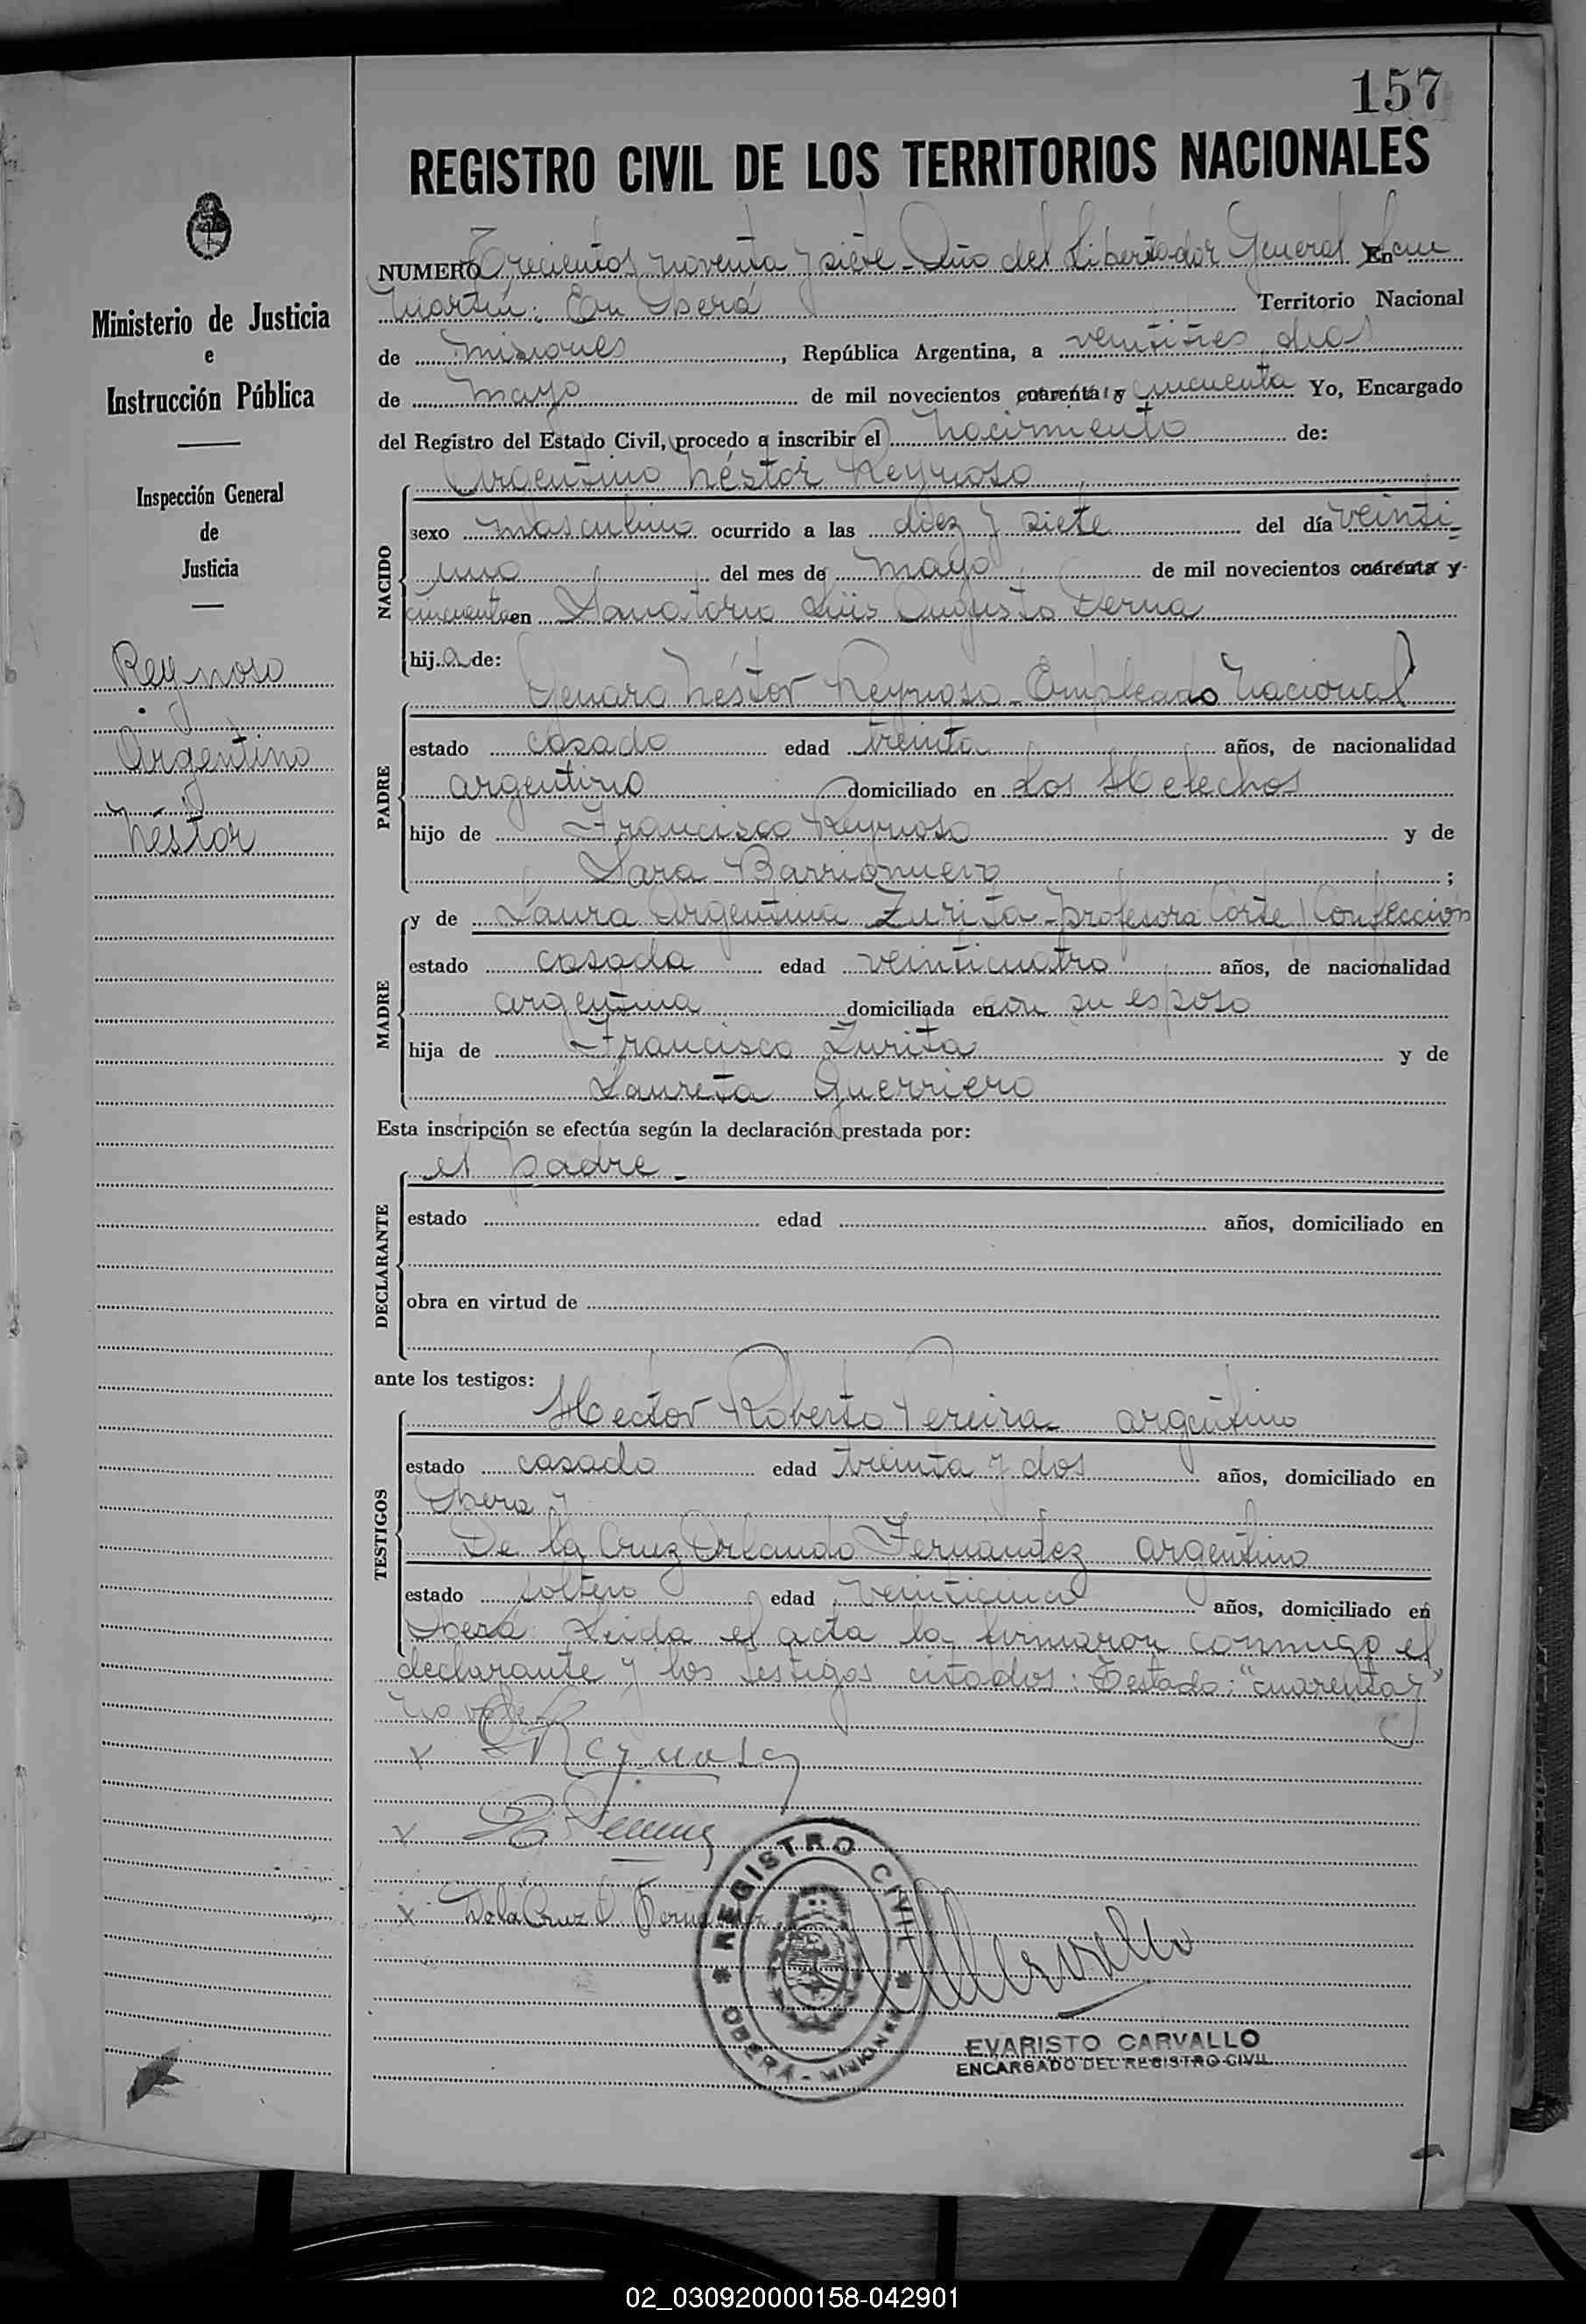 157
REGISTRO CIVIL DE LOS TERRITORIOS NACIONALES
Ministerio de Justicia
e
Instrucción Pública
Inspección General
de
Justicia
Reynoso
Argentino
Néstor
NUMERO Trecientos noventa y siete - Año del Libertador General En San
Martín: En Oberá Territorio Nacional
de Misiones, República Argentina, a veintitres dias
de mayo de mil novecientos cuarenta y cincuenta Yo, Encargado
del Registro del Estado Civil, procedo a inscribir el nacimiento de:
NACIDO
Argentino Néstor Reynoso
sexo masculino ocurrido a las diez y siete del día veinti-
uno del mes de mayo de mil novecientos cuarenta y
cincuenta en Sanatorio Luis Augusto Derna
hij a de:
PADRE
Genaro Néstor Reynoso - Empleado Nacional
estado casado edad treinta años, de nacionalidad
argentino domiciliado en Los Helechos
hijo de Francisco Reynoso y de
Sara Barrionuevo ;
MADRE
y de Laura Argentina Zurita - profesora Corte y Confección
estado casada edad veinticuatro años, de nacionalidad
argentina domiciliada en con su esposo
hija de Francisco Zurita y de
Laureta Guerriero
Esta inscripción se efectúa según la declaración prestada por:
DECLARANTE
el padre -
estado edad años, domiciliado en
obra en virtud de
ante los testigos:
TESTIGOS
Hector Roberto Pereira argentino
estado casado edad treinta y dos años, domiciliado en
Oberá y
De la Cruz Orlando Fernández argentino
estado soltero edad veinticinco años, domiciliado en
Oberá: Leida el acta la firmaron conmigo el
declarante y los testigos citados: Testado: "cuarenta y"
no vale
x Reynoso
x
x De la Cruz O Fernandez
REGISTRO CIVIL
OBERÁ - MISIONES
EVARISTO CARVALLO
ENCARGADO DEL REGISTRO CIVIL
02_030920000158-042901